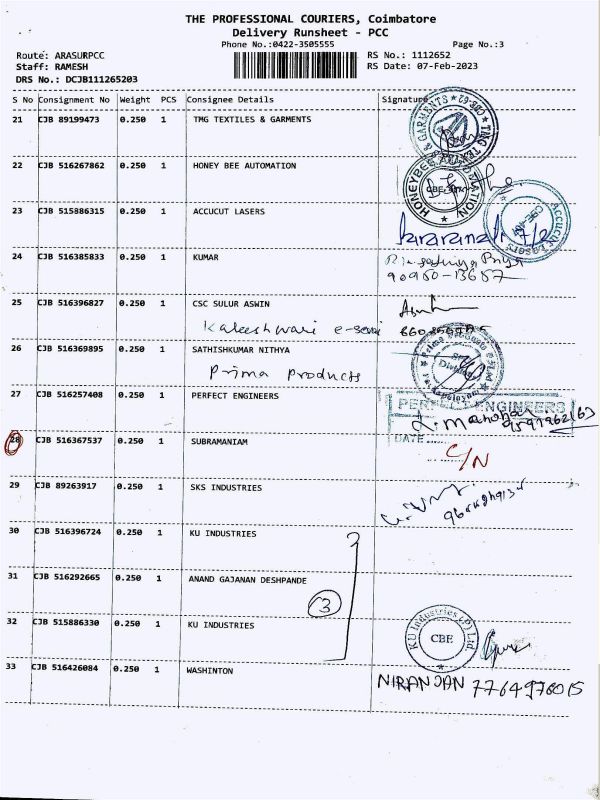 THE PROFESSIONAL COURIERS, Coimbatore
Delivery Runsheet - PCC
Phone No.:0422-3505555
Page No.:3
Route: ARASURPCC
RS No.: 1112652
Staff: RAMESH
RS Date: 07-Feb-2023
DRS No.: DCJB111265203
S No Consignment No Weight PCS Consignee Details Signature
21 CJB 89199473 0.250 1 TMG TEXTILES & GARMENTS
22 CJB 516267862 0.250 1 HONEY BEE AUTOMATION
HONEYBEE AUTOMATION
23 CJB 515886315 0.250 1 ACCUCUT LASERS
24 CJB 516385833 0.250 1 KUMAR
90950-13657
25 CJB 516396827 0.250 1 CSC SULUR ASWIN
Kaleeshwari e-sevai
26 CJB 516369895 0.250 1 SATHISHKUMAR NITHYA
Prima Products
27 CJB 516257408 0.250 1 PERFECT ENGINEERS
ENGINEERS
DATE
28 CJB 516367537 0.250 1 SUBRAMANIAM
C/N
29 CJB 89263917 0.250 1 SKS INDUSTRIES
30 CJB 516396724 0.250 1 KU INDUSTRIES
31 CJB 516292665 0.250 1 ANAND GAJANAN DESHPANDE
3
32 CJB 515886330 0.250 1 KU INDUSTRIES
KU Industries (P) Ltd.
CBE
33 CJB 516426084 0.250 1 WASHINTON
NIRANJAN 7764976015